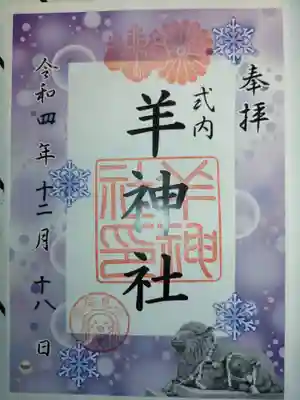 奉拝
式内
羊神社
令和四年十二月十八日
羊神社印